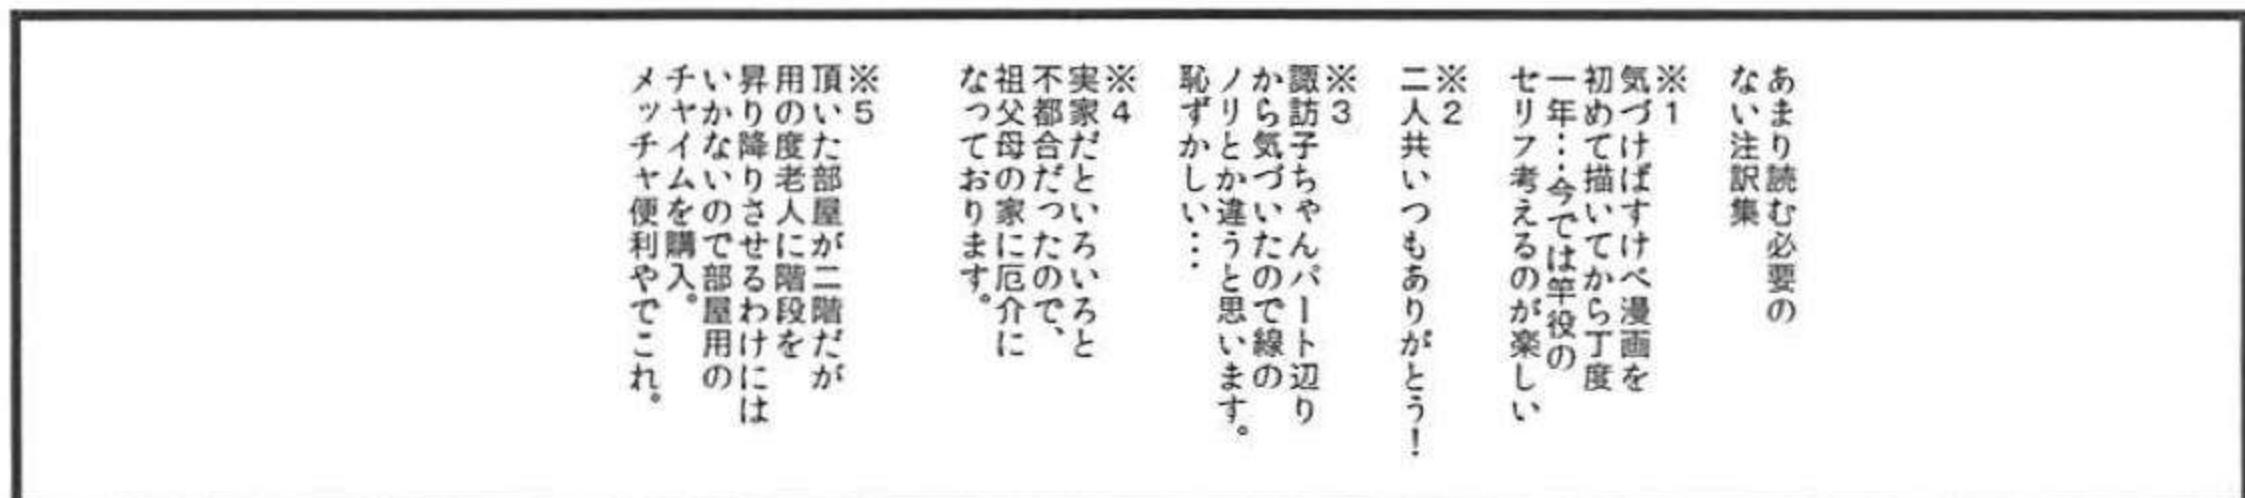 あまり読む必要の
ない注訳集
※1
気づけばすけべ漫画を
初めて描いてから丁度
一年…今では竿役の
セリフ考えるのが楽しい
※2
二人共いつもありがとう!
※3
諏訪子ちゃんパート辺り
から気づいたので線の
ノリとか違うと思います。
恥ずかしい…
※4
実家だといろいろと
不都合だったので、
祖父母の家に厄介に
なっております。
※5
頂いた部屋が二階だが
用の度老人に階段を
昇り降りさせるわけには
いかないので部屋用の
チャイムを購入。
メッチャ便利やでこれ。